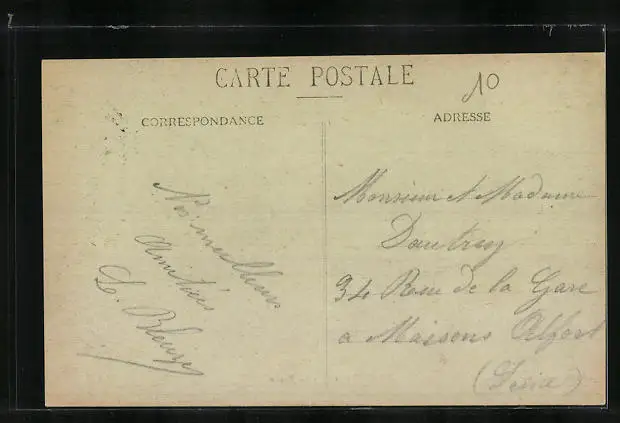 CARTE POSTALE
10
CORRESPONDANCE
ADRESSE
Nos meilleures
Amitiés
Monsieur et Madame
34 Rue de la Gare
a Maisons Alfort
(Seine)